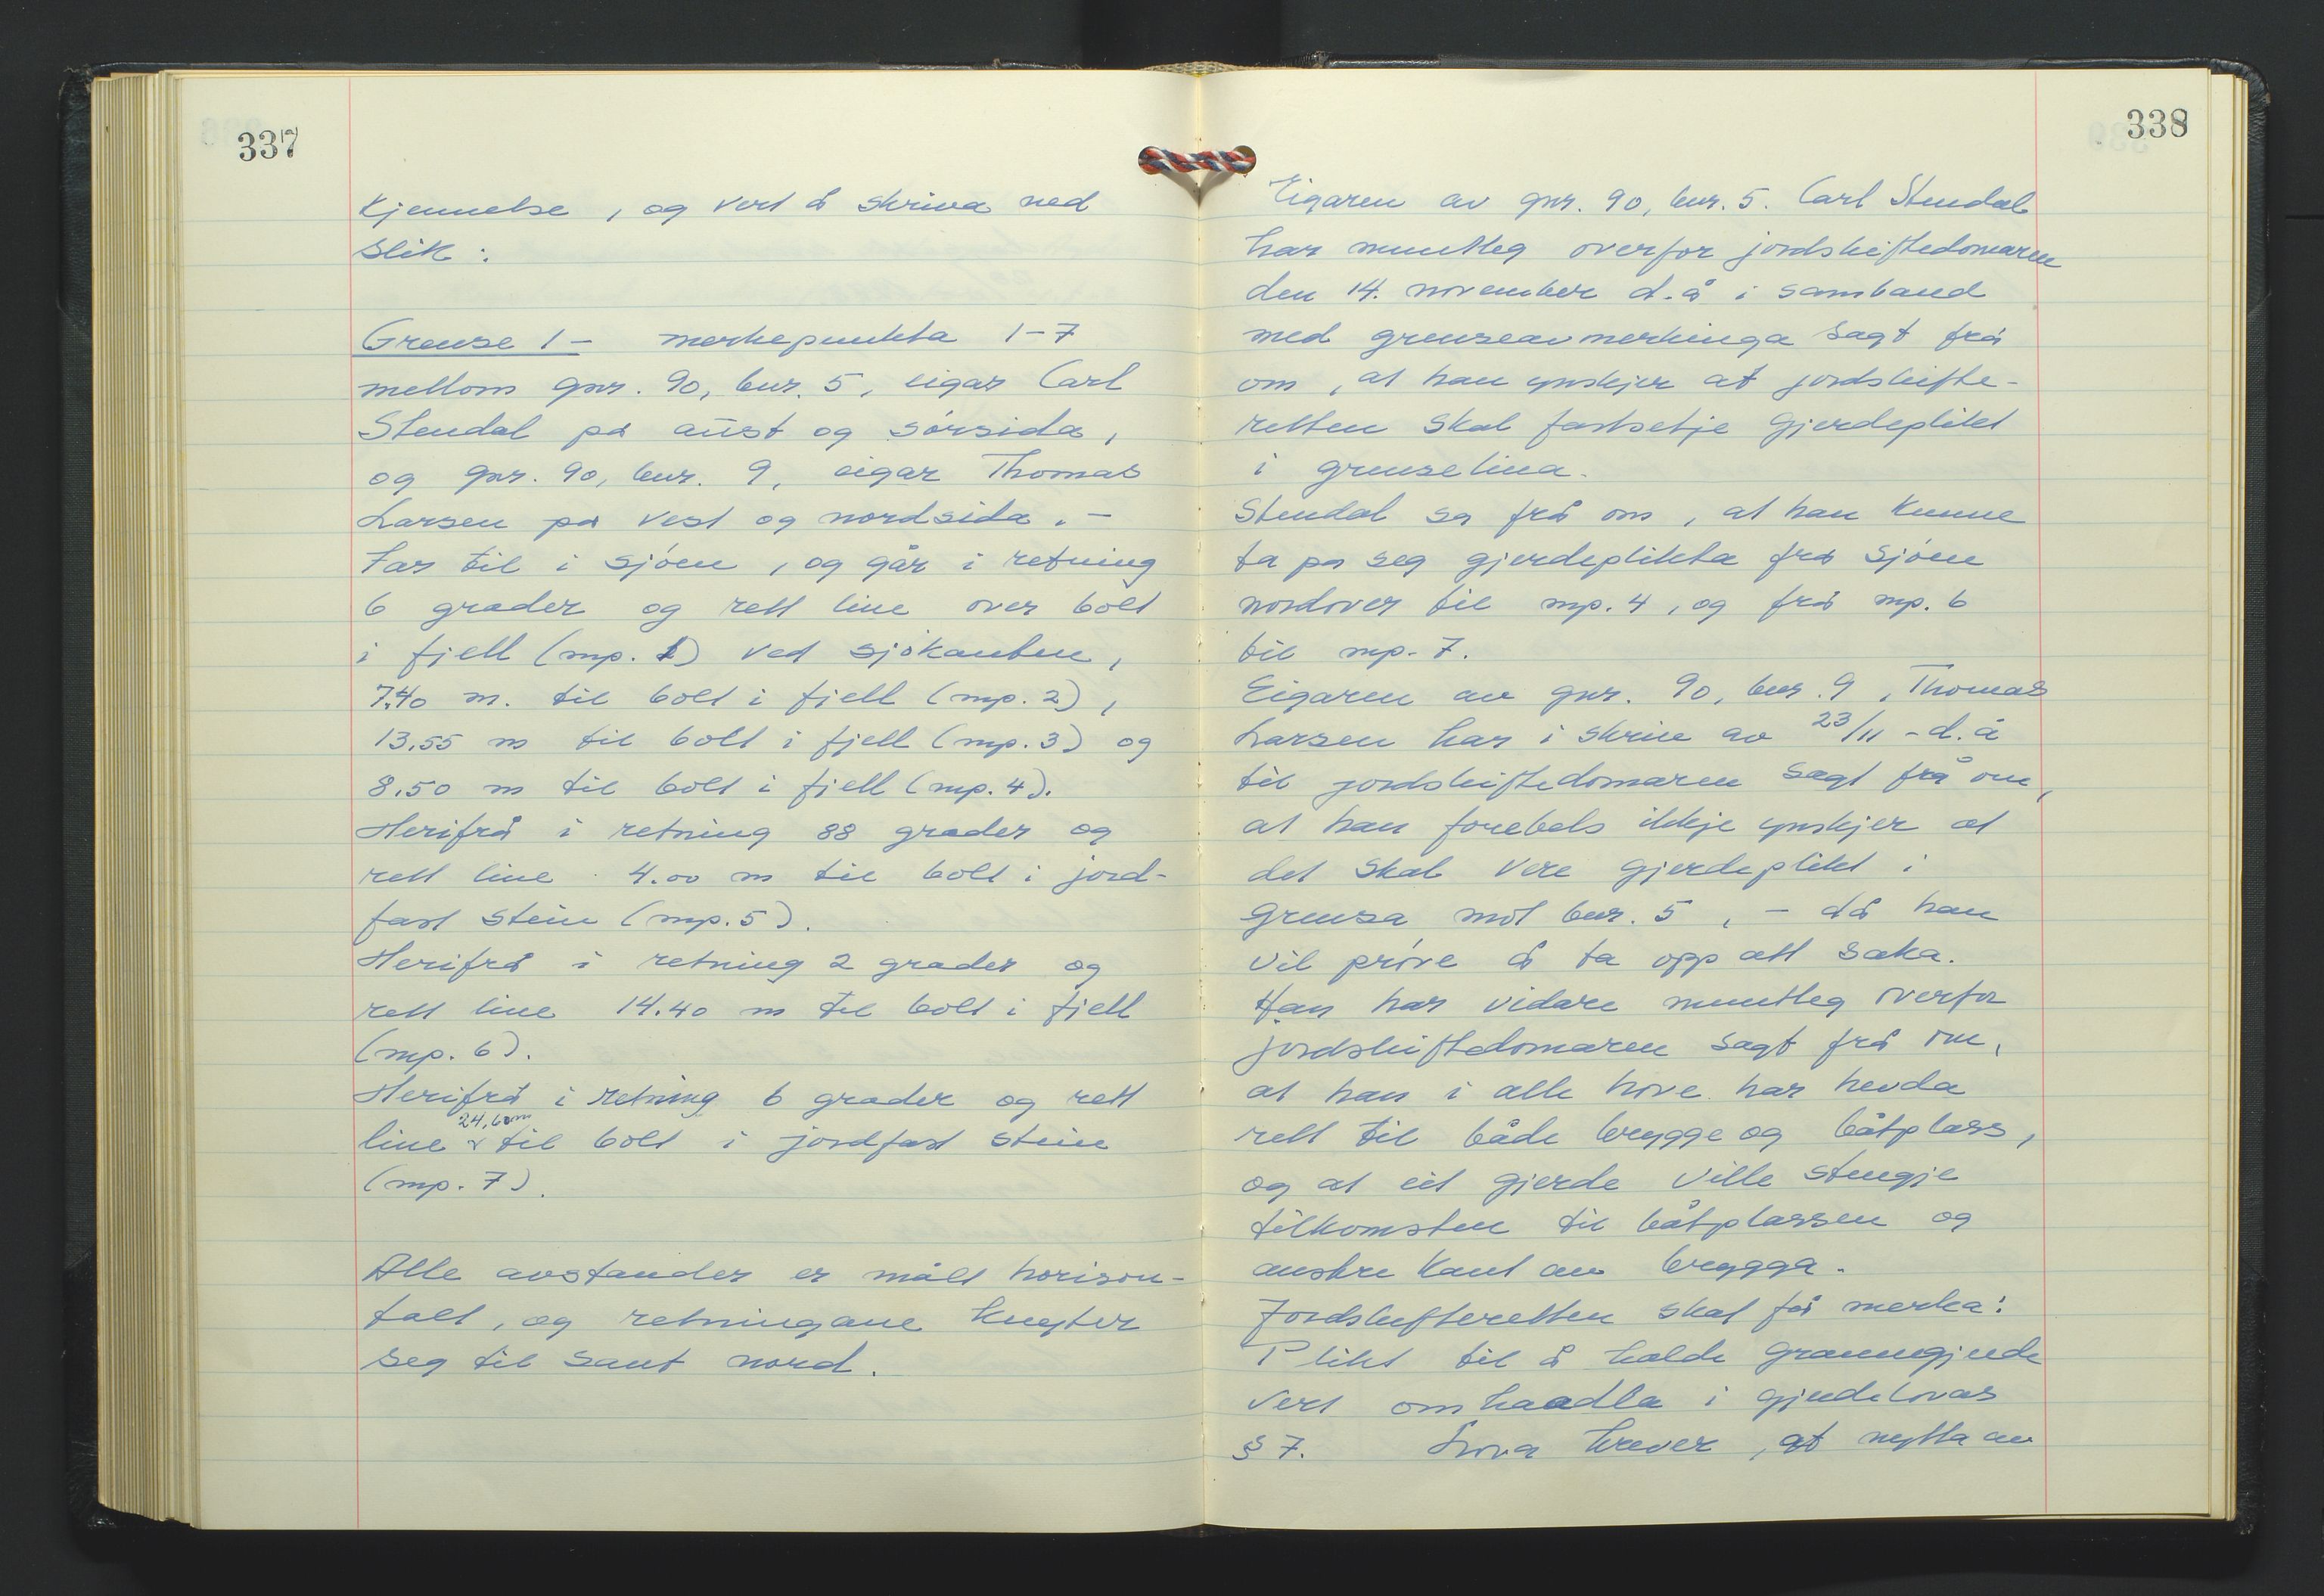 337
kjennelse, og vert å skriva ned
slik:
Grense 1 - merkepunkta 1-7
mellom gnr. 90, bnr. 5, eigar Carl
Stendal på aust og sørsida,
og gnr. 90, bnr. 9, eigar Thomas
Larsen på vest og nordsida. -
Tar til i sjøen, og går i retning
6 grader og rett line over bolt
i fjell (mp. 1) ved sjøkanten,
7.40 m. til bolt i fjell (mp. 2),
13.55 m til bolt i fjell (mp. 3) og
8.50 m til bolt i fjell (mp. 4).
Herifrå i retning 88 grader og
rett line 4.00 m til bolt i jord-
fast stein (mp. 5).
Herifrå i retning 2 grader og
rett line 14.40 m til bolt i fjell
(mp. 6).
Herifrå i retning 6 grader og rett
24,60m
line v til bolt i jordfast stein
(mp. 7).
Alle avstander er målt horison-
talt, og retningane knyter
seg til sant nord.
338
Eigaren av gnr. 90, bnr. 5. Carl Stendal
har muntleg overfor jordskiftedomaren
den 14. november d.å i samband
med grenseavmerkinga sagt frå
om, at han ynskjer at jordskifte-
retten skal fastsetje gjerdeplikt
i grenselina.
Stendal sa frå om, at han kunne
ta på seg gjerdeplikta frå sjøen
nordover til mp. 4, og frå mp. 6
til mp. 7.
Eigaren av gnr. 90, bnr. 9, Thomas
Larsen har i skriv av 23/11 - d.å
til jordskiftedomaren sagt frå om,
at han førebels ikkje ynskjer at
det skal vere gjerdeplikt i
grensa mot bnr. 5, - då han
vil prøve å ta opp att saka.
Han har vidare muntleg overfor
jordskiftedomaren sagt frå om,
at han i alle høve har hevda
rett til både brygge og båtplass,
og at eit gjerde ville stengje
tilkomsten til båtplassen og
austre kant av brygga.
Jordskifteretten skal få merka:
Plikt til å halde granngjerde
vert omhandla i gjerdelovas
§ 7. Lova krever, at nytta av